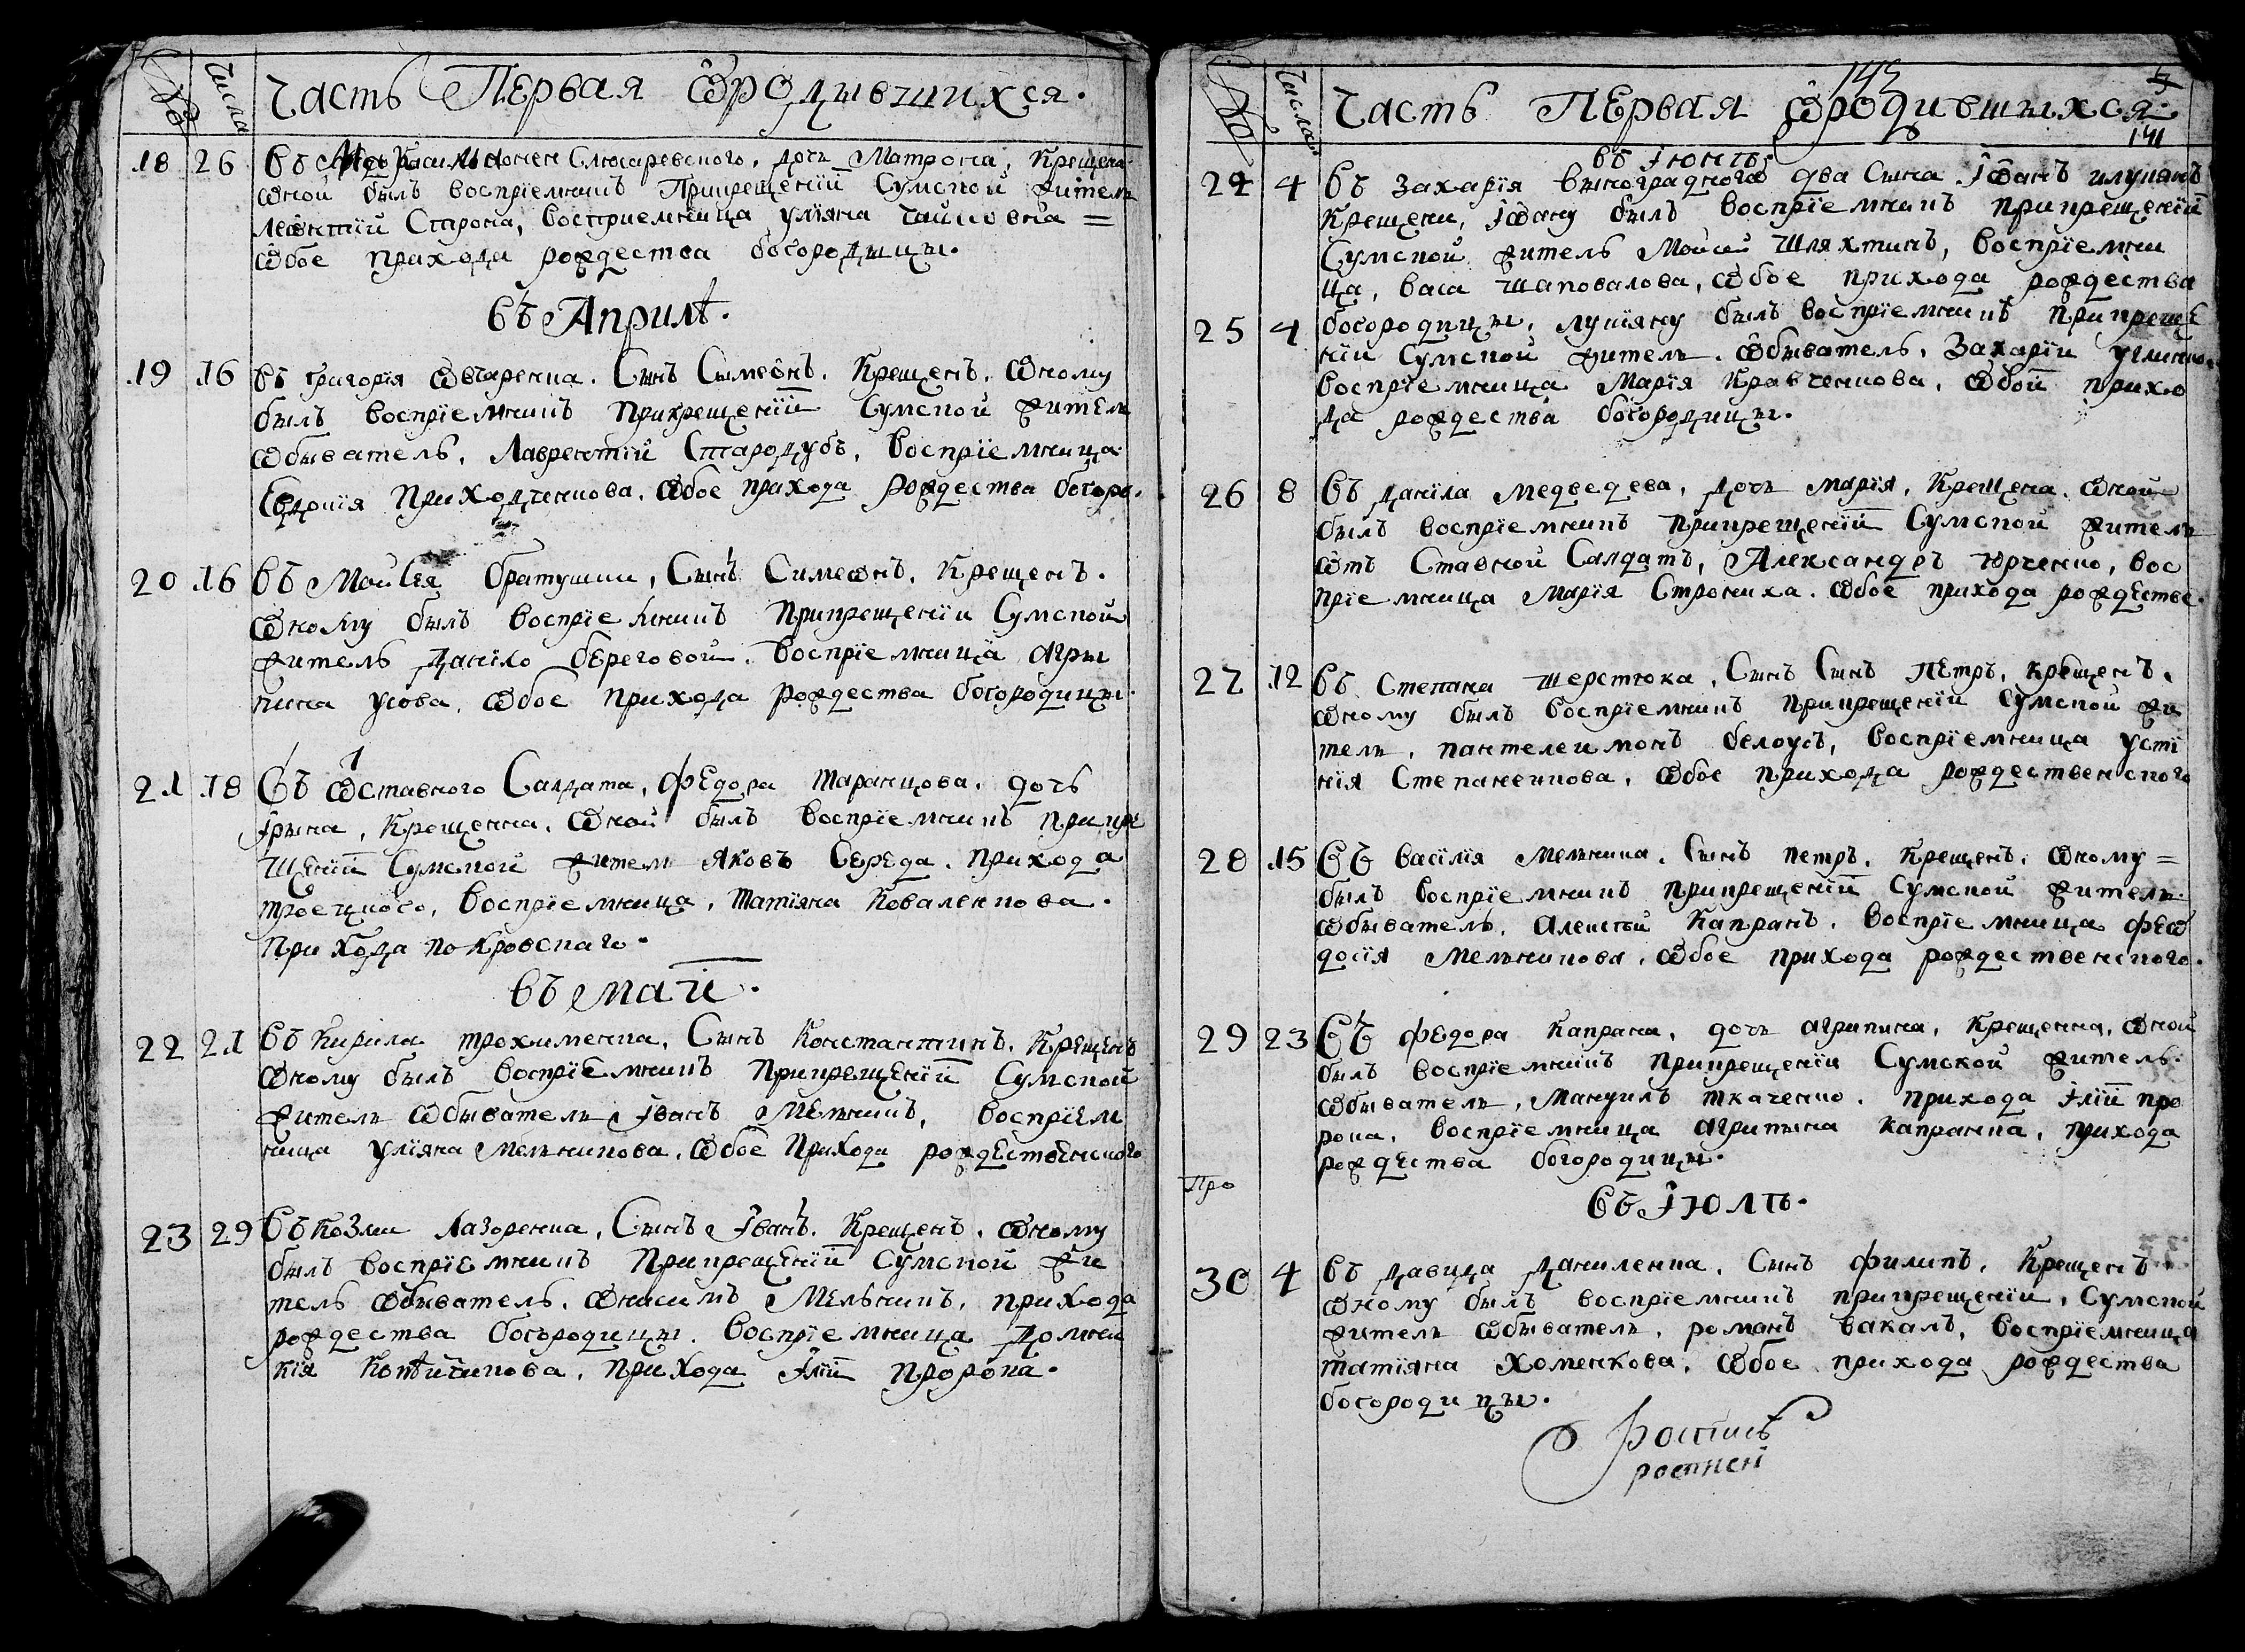 Числа
Часть Первая ѡродывшихся.
18 26 Въ Слюсаревского, дочь Матрона, Крещена
ѡной былъ воспрїемникъ Прикрещенїй Сумской житель
Леѡнтїй Строна, восприемница улїяна =
ѡбое прихода рождества богородыцы.
Въ Априлѣ.
19 16 Въ григорїя ѡвчаренка. Сынъ Сымеѡнъ. Крещенъ. ѡному
былъ воспрїемникъ прикрещенїй Сумской житель
ѡбыватель, Лаврентїй Стародубъ, воспрїемница
Евдокїя Приходченкова. ѡбое прихода рождества богоро.
20 16 Въ Моисея братушки, Сынъ Симеѡнъ, Крещенъ.
ѡному былъ воспрїемникъ прикрещенїи Сумской
житель данїло береговой. воспрїемница агры
пина усова, ѡбое прихода рождества богородицы.
21 18 Въ ѡтставного Салдата, Федора таранцова. дочь
Ірына, Крещенна. ѡной былъ воспрїемникъ прикре
щенїй Сумской житель Яковъ Середа. прихода
троецкого, воспрїемница, татїяна Коваленкова.
прихода покровскаго.
въ маїи.
22 21 Въ Кирила трохименка, Сынъ Константинъ. Крещенъ
ѡному былъ воспрїемникъ прикрещенїй Сумской
житель ѡбыватель Іванъ Мелникъ, воспрїем
ница улїяна мелникова. ѡбое прихода рождественского
23 29 Въ Козми Лазоренка, Сынъ Іванъ. Крещенъ. ѡному
былъ воспрїемникъ прикрещенїй Сумской жи
тель ѡбыватель. ѡнисимъ Мельникъ, прихода
рождества богородицы. воспрїемница домни
кїя прихода Ілїи пророка.
Числа
143
Часть Первая ѡродившыхся.
141
въ Іюнѣ.
24 4 Въ захарїя выноградного два сына Іѡанъ илукїянъ
Крещени, Іѡану былъ воспрїемникъ прикрещенїй
Сумской житель Мойсей Шляхтинъ, воспрїемни
ца, васа шаповалова, ѡбое прихода рождества
25 4 богородицы. лукїяну былъ воспрїемникъ прикреще
нїи Сумской житель. ѡбыватель. Захарїи
воспрїемница Марїя Кравченкова. ѡбой прихо
да рождества богородицы.
26 8 Въ данїла медведева, дочь марїя, Крещена. ѡной
былъ воспрїемникъ прикрещенїй Сумской житель
ѡтъ Ставной Салдатъ, Александръ юрченко, вос
прїемница марїя Строниха. ѡбое прихода рождестве.
27 12 Въ Степана шерстюка, Сынъ Сынъ Петръ, крещенъ.
ѡному былъ воспрїемникъ прикрещенїй Сумской жи
тель. пантелеимонъ белоусъ, воспрїемница усті
нїя Степаненкова. ѡбое прихода рождественского
28 15 Въ васїлїя мелника. Сынъ петръ. крещенъ. ѡному =
былъ воспрїемникъ прикрещенїй Сумской житель.
ѡбыватель. алексѣй Капранъ. воспрїемница феѡ
досїя мелникова. ѡбое прихода рождественского.
29 23 Въ федора Капрана, дочь агрипина, крещенна, ѡной
былъ воспрїемникъ прикрещенїи Сумской житель.
ѡбыватель, мануилъ ткаченко. прихода Ілїи про
рока. воспрїемница агрипына капранка, прихода
рождества богородицы.
Про
въ Іюлѣ.
30 4 Въ давида даниленка. Сынъ филипъ. Крещенъ.
ѡному былъ воспрїемникъ прикрещенїи. Сумской
житель ѡбыватель. романъ вакалъ, воспрїемница
татїяна хоменкова. ѡбое прихода рождества
богородицы.